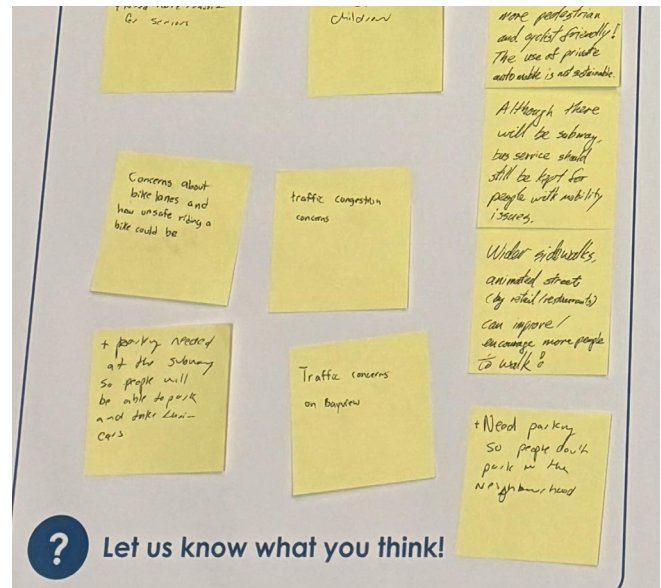 for seniors
children
more pedestrian
and cyclist friendly!
The use of private
automobile is not sustainable.
Although there
will be subway,
bus service should
still be kept for
people with mobility
issues.
Concerns about
bike lanes and
how unsafe riding a
bike could be
traffic congestion
concerns
Wider sidewalks,
animated street
(by retail/restaurants)
can improve/
encourage more people
to walk!
+ parking needed
at the subway
so people will
be able to park
and take
cars
Traffic concerns
on Bayview
+ Need parking
so people don't
park in the
Neighbourhood
? Let us know what you think!